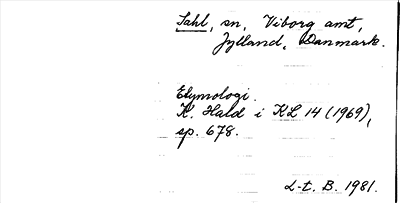 Sahl, sn, Viborg amt,
Jylland, Danmark.
Etymologi.
K. Hald i KL 14 (1969),
sp. 678.
L-t. B. 1981.